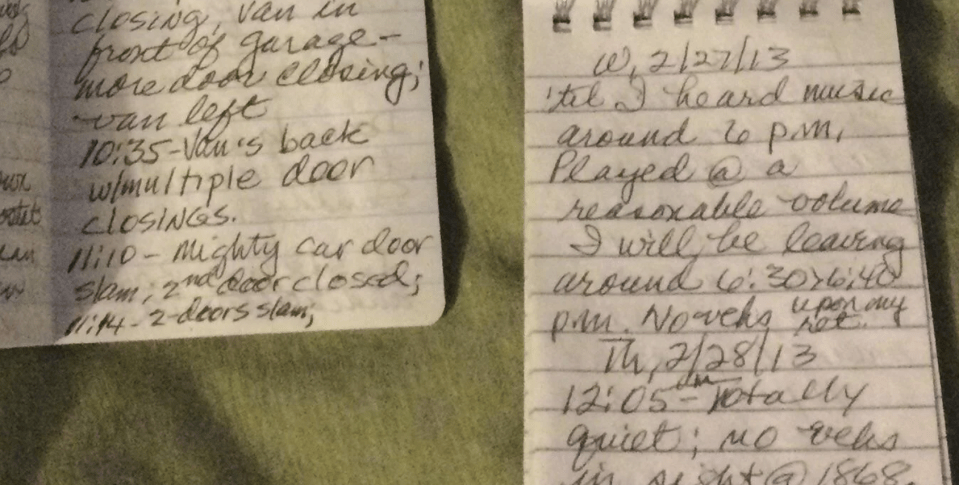 closing, van in
front of garage-
more door closing;
van left
10:35-Van's back
w/multiple door
closings.
11:10- Mighty car door
slam; 2nd door closed;
11:14- 2-doors slam;
W, 2/27/13
'til I heard music
around 6 p.m.
Played @ a
reasonable volume
I will be leaving
around 6:30>6:40
p.m. No vehs upon my
ret.
Th, 2/28/13
12:05 am - Totally
quiet; no vehs
in sight @ 1868.